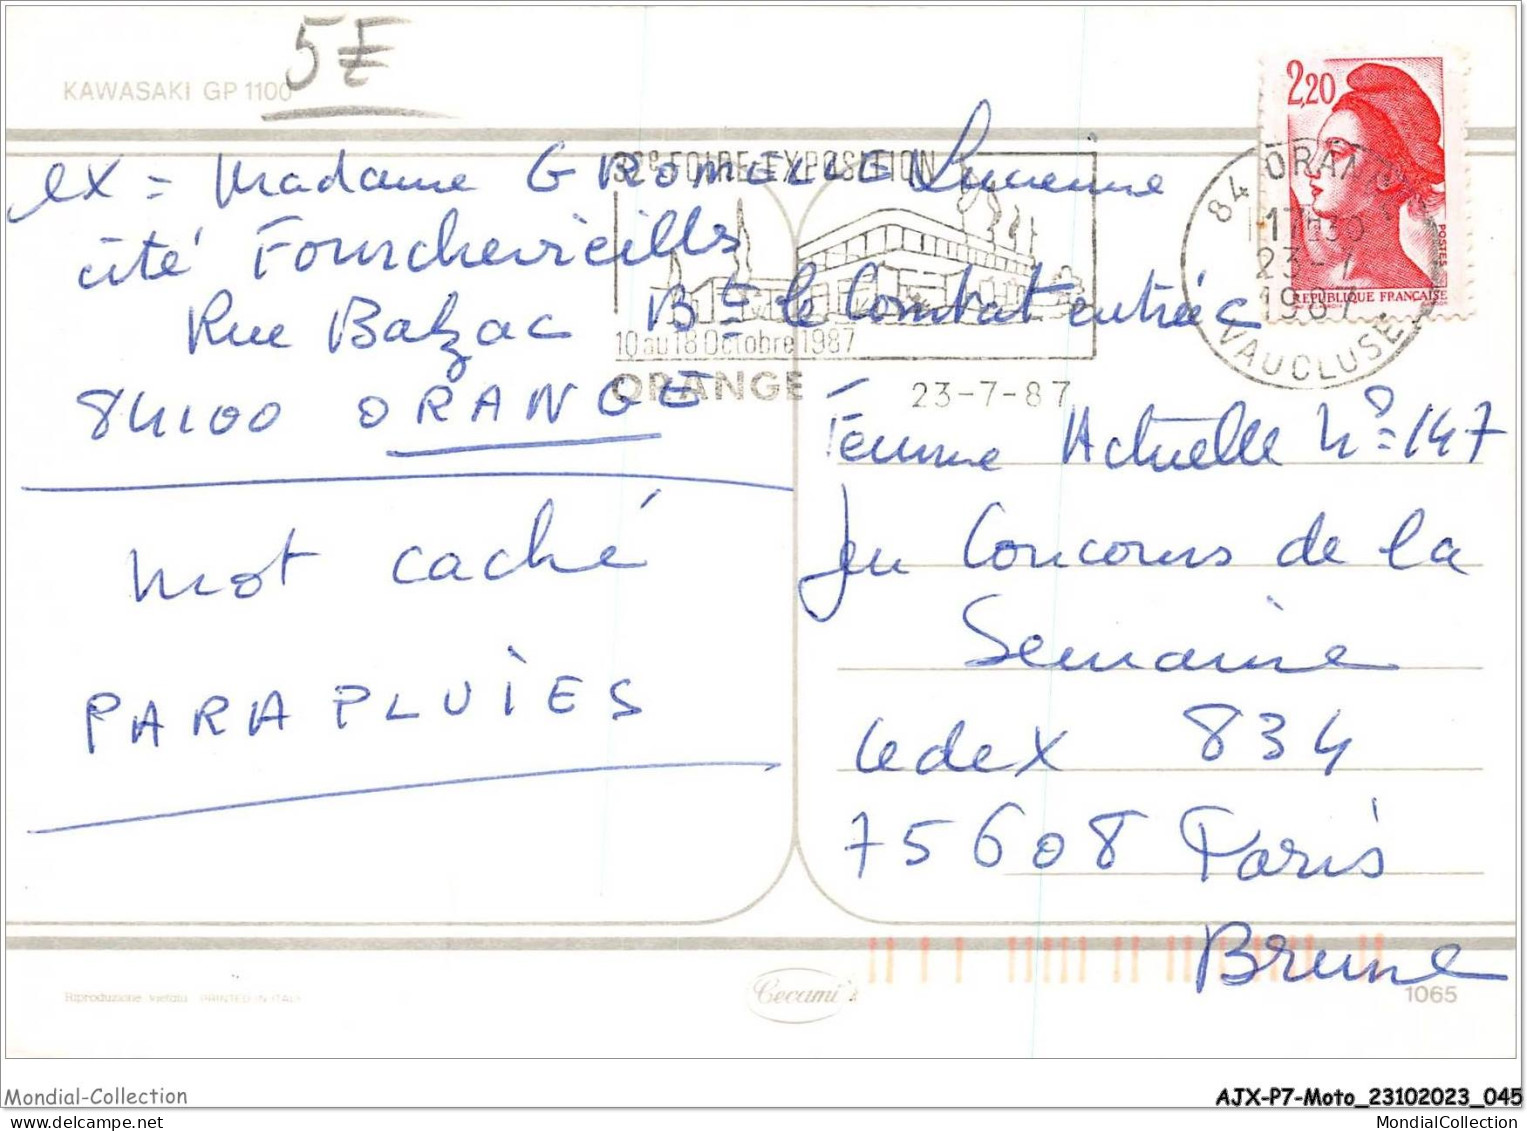 5F
KAWASAKI GP 1100
2,20
POSTES
REPUBLIQUE FRANÇAISE
84 ORANGE
17H30
23-7
1987
VAUCLUSE
32e FOIRE-EXPOSITION
10 au 18 Octobre 1987
ORANGE
23-7-87
ex = Madame GROMELLE Lucienne
cité Fourchevieilles
Rue Balzac Bt le Combat entrée
84100 ORANGE
mot caché
PARAPLUiES
Femme Actuelle N° = 147
Jeu Concours de la
Semaine
Cedex 834
75608 Paris
Brune
Riproduzione vietata PRINTED IN ITALY
Cecami
1065
Mondial-Collection
AJX-P7-Moto_23102023_045
MondialCollection